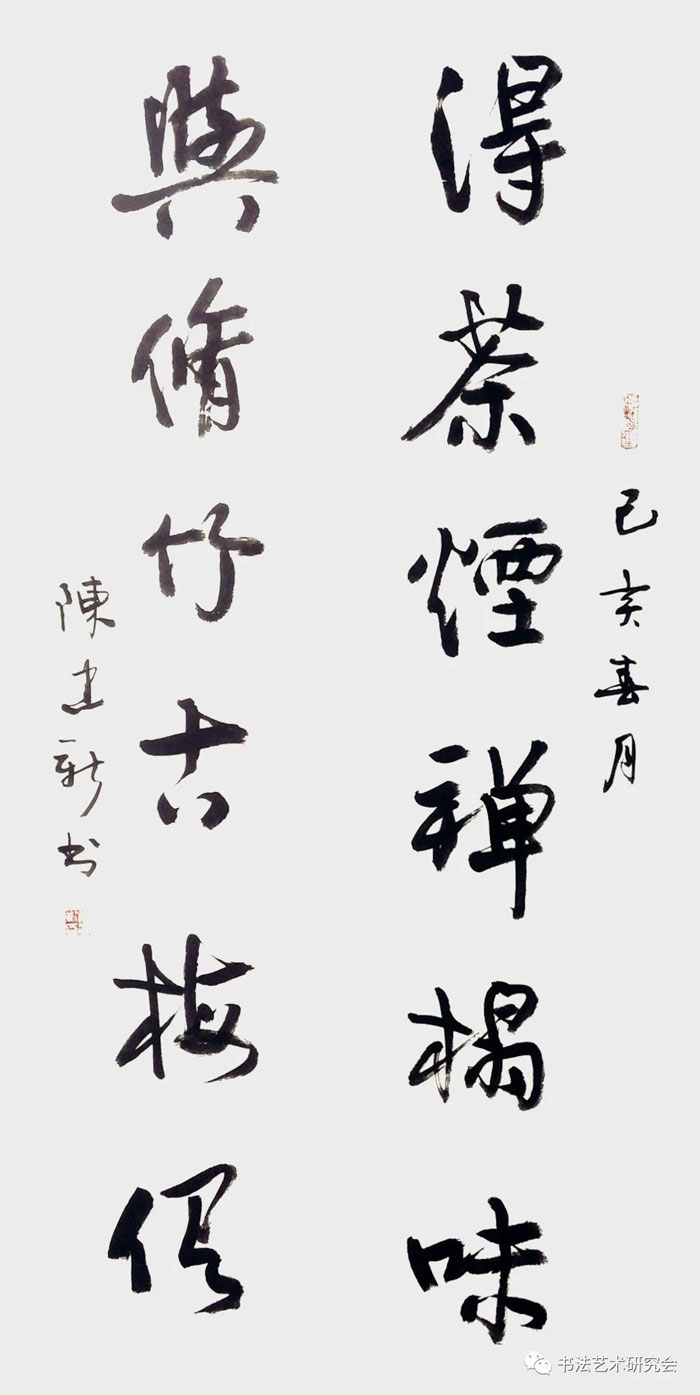 己亥春月
得茶煙禅榻味
與脩竹古梅俱
陳建新书
书法艺术研究会